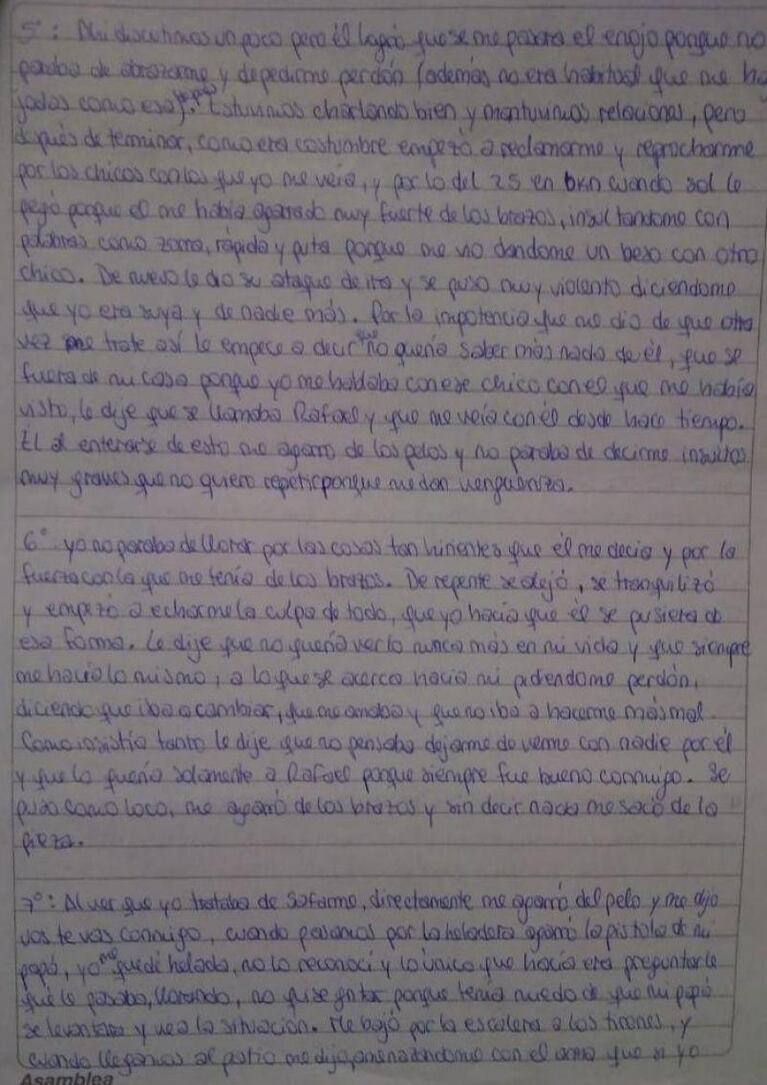 5°: Ahi discutimos un poco pero él logró que se me pasara el enojo porque no
paraba de abrazarme y de pedirme perdón (además no era habitual que me ha
jodas como esa). Estuvimos charlando bien y mantuvimos relaciones, pero
después de terminar, como era costumbre empezó a reclamarme y reprocharme
por los chicos con los que yo me veía, y por lo del 25 en bkn cuando sol le
pegó porque el me había agarrado muy fuerte de los brazos, insultandome con
palabras como zorra, rápida y puta porque me vio dandome un beso con otro
chico. De nuevo le dio su ataque de ira y se puso muy violento diciendome
que yo era suya y de nadie más. Por la impotencia que me dio de que otra
vez me trate así le empece a decir que no quería saber más nada de él, que se
fuera de mi casa porque yo me hablaba con ese chico con el que me había
visto, le dije que se llamaba Rafael y que me veía con él desde hace tiempo.
Él al enterarse de esto me agarro de los pelos y no paraba de decirme insultos
muy graves que no quiero repetir porque me dan verguenza.
6° yo no paraba de llorar por las cosas tan hirientes que él me decia y por la
fuerza con la que me tenía de los brazos. De repente se alejó, se tranquilizó
y empezó a echarme la culpa de todo, que yo hacía que él se pusiera de
esa forma. Le dije que no quería verlo nunca más en mi vida y que siempre
me hacía lo mismo, a lo que se acerca hacia mi pidendome perdón,
diciendo que iba a cambiar, que me amaba y que no iba a hacerme más mal.
Como insistía tanto le dije que no pensaba dejarme de verme con nadie por él
y que lo quería solamente a Rafael porque siempre fue bueno conmigo. Se
puso como loco, me agarró de los brazos y sin decir nada me sacó de la
pieza.
7°: Al ver que yo trataba de safarme, directamente me agarró del pelo y me dijo
vos te vas conmigo, cuando pasamos por la heladera agarró la pistola de mi
papá, yo me quedé helada, no lo reconocí y lo único que hacía era preguntarle
qué le pasaba, llorando, no quise gritar porque tenía miedo de que mi papá
se levantara y vea la situación. Me bajó por la escalera a los tirones, y
cuando llegamos al patio me dijo, amenazandome con el arma que si yo
Asamblea